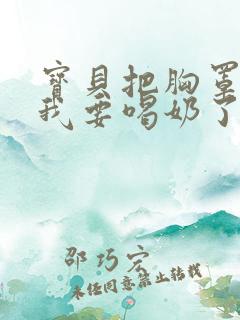 寶貝把胸罩
我要喝奶了
邵巧宏
未经同意禁止转载